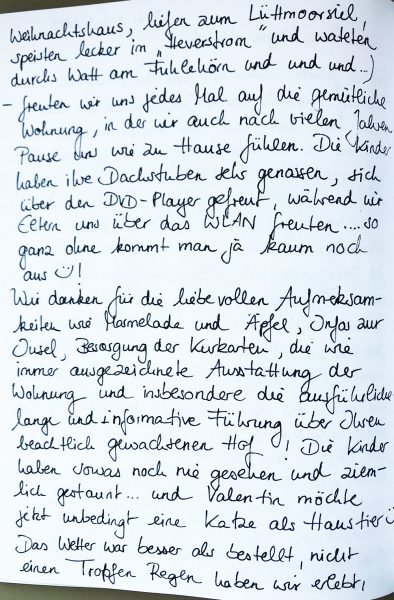 Weihnachtshaus, liefen zum Lüttmoorsiel,
speisten lecker im „Heverstrom" und wateten
durchs Watt am Fuhlehörn und und und...)
- freuten wir uns jedes Mal auf die gemütliche
Wohnung, in der wir auch nach vielen Jahren
Pause uns wie zu Hause fühlen. Die Kinder
haben ihre Dachstuben sehr genossen, sich
über den DVD-Player gefreut, während wir
Eltern uns über das WLAN freuten .... so
ganz ohne kommt man ja kaum noch
aus ☺!
Wir danken für die liebevollen Aufmerksam-
keiten wie Marmelade und Äpfel, Infos zur
Insel, Besorgung der Kurkarten, die wie
immer ausgezeichnete Ausstattung der
Wohnung und insbesondere die ausführliche
lange und informative Führung über Ihren
beachtlich gewachsenen Hof! Die Kinder
haben sowas noch nie gesehen und ziem-
lich gestaunt... und Valentin möchte
jetzt unbedingt eine Katze als Haustier ☺
Das Wetter war besser als bestellt, nicht
einen Tropfen Regen haben wir erlebt,